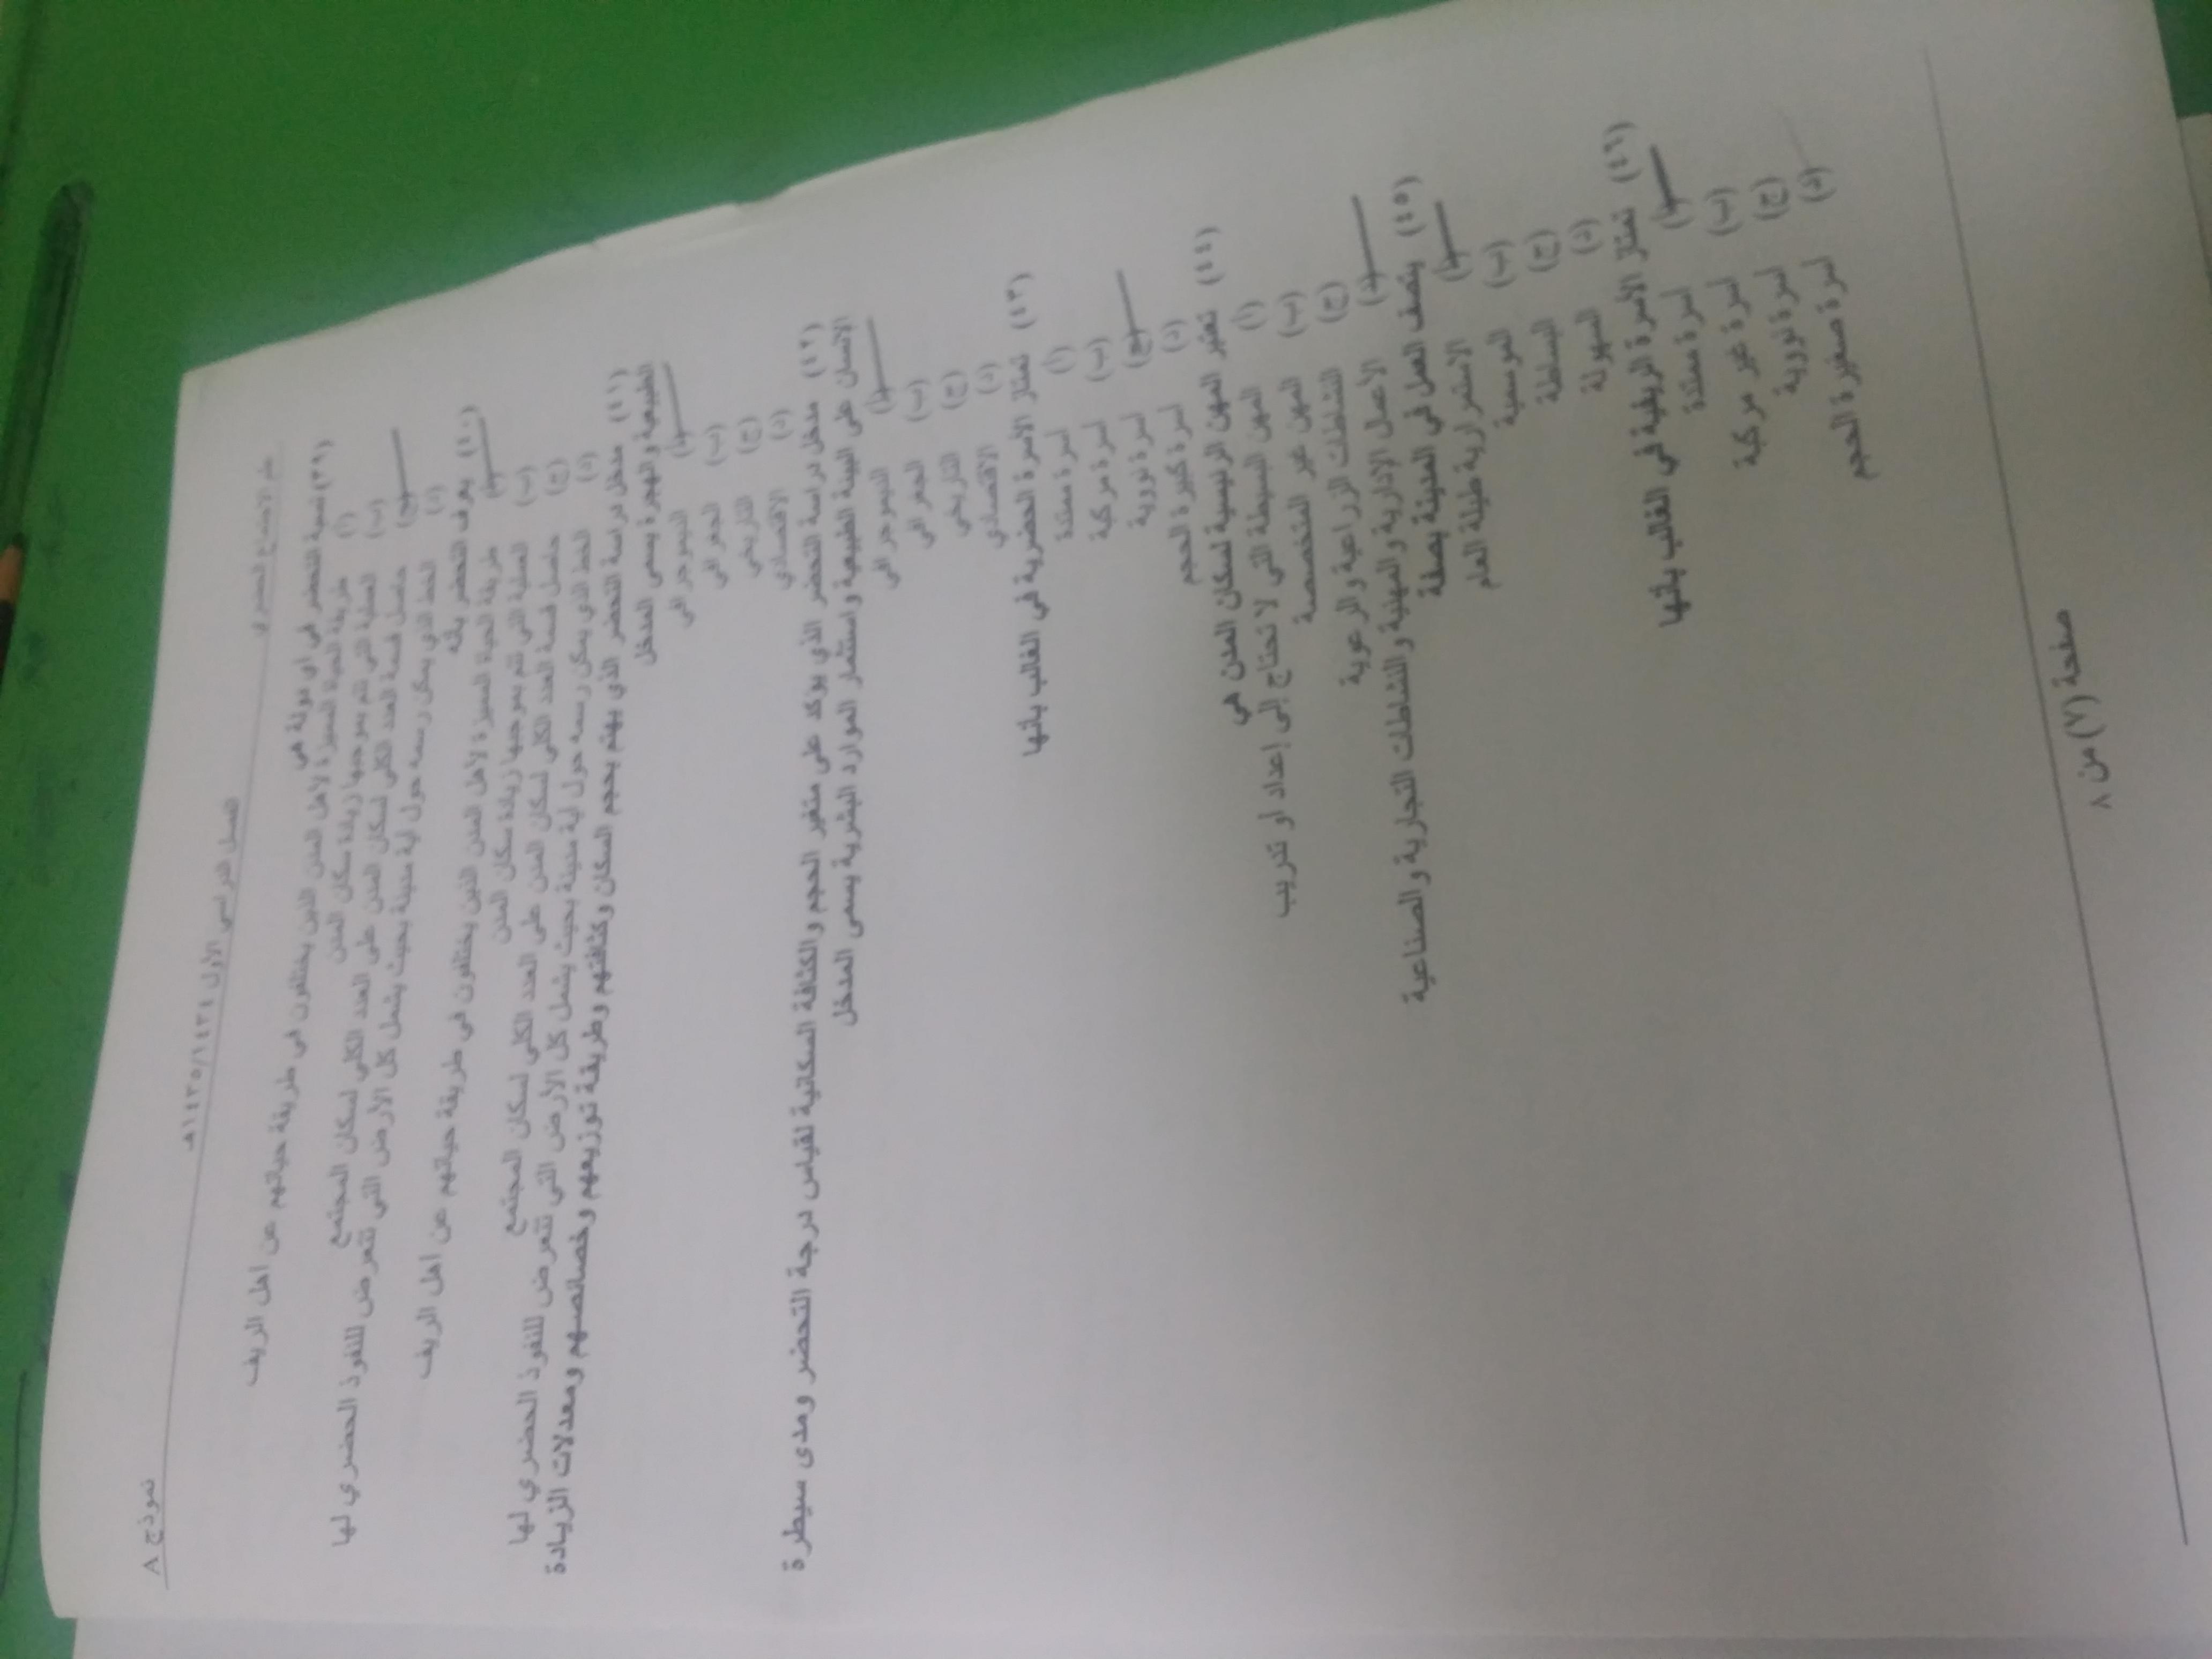 علم الاجتماع الحضري
الفصل الدراسي الأول ١٤٣٤/١٤٣٥هـ
نموذج ٨
(٣٩) نسبة التحضر في أي دولة هي
(أ) طريقة الحياة المميزة لأهل المدن الذين يختلفون في طريقة حياتهم عن أهل الريف
(ب) العملية التي تتم بموجبها زيادة سكان المدن
(ج) حاصل قسمة العدد الكلي لسكان المدن على العدد الكلي لسكان المجتمع
(د) الخط الذي يمكن رسمه حول أية مدينة بحيث يشمل كل الأرض التي تتعرض للنفوذ الحضري لها
(٤٠) يعرف التحضر بأنه
(أ) طريقة الحياة المميزة لأهل المدن الذين يختلفون في طريقة حياتهم عن أهل الريف
(ب) العملية التي تتم بموجبها زيادة سكان المدن
(ج) حاصل قسمة العدد الكلي لسكان المدن على العدد الكلي لسكان المجتمع
(د) الخط الذي يمكن رسمه حول أية مدينة بحيث يشمل كل الأرض التي تتعرض للنفوذ الحضري لها
(٤١) مدخل دراسة التحضر الذي يهتم بحجم السكان وكثافتهم وطريقة توزيعهم وخصائصهم ومعدلات الزيادة
الطبيعية والهجرة يسمى المدخل
(أ) الديموجرافي
(ب) الجغرافي
(ج) التاريخي
(د) الاقتصادي
(٤٢) مدخل دراسة التحضر الذي يؤكد على متغير الحجم والكثافة السكانية لقياس درجة التحضر ومدى سيطرة
الإنسان على البيئة الطبيعية واستثمار الموارد البشرية يسمى المدخل
(أ) الديموجرافي
(ب) الجغرافي
(ج) التاريخي
(د) الاقتصادي
(٤٣) تمتاز الأسرة الحضرية في الغالب بأنها
(أ) أسرة ممتدة
(ب) أسرة مركبة
(ج) أسرة نووية
(د) أسرة كبيرة الحجم
(٤٤) تعتبر المهن الرئيسية لسكان المدن هي
(أ) المهن البسيطة التي لا تحتاج إلى إعداد أو تدريب
(ب) المهن غير المتخصصة
(ج) النشاطات الزراعية والرعوية
(د) الأعمال الإدارية والمهنية والنشاطات التجارية والصناعية
(٤٥) يتصف العمل في المدينة بصفة
(أ) الاستمرارية طيلة العام
(ب) الموسمية
(ج) البساطة
(د) السهولة
(٤٦) تمتاز الأسرة الريفية في الغالب بأنها
(أ) أسرة ممتدة
(ب) أسرة غير مركبة
(ج) أسرة نووية
(د) أسرة صغيرة الحجم
صفحة (٧) من ٨